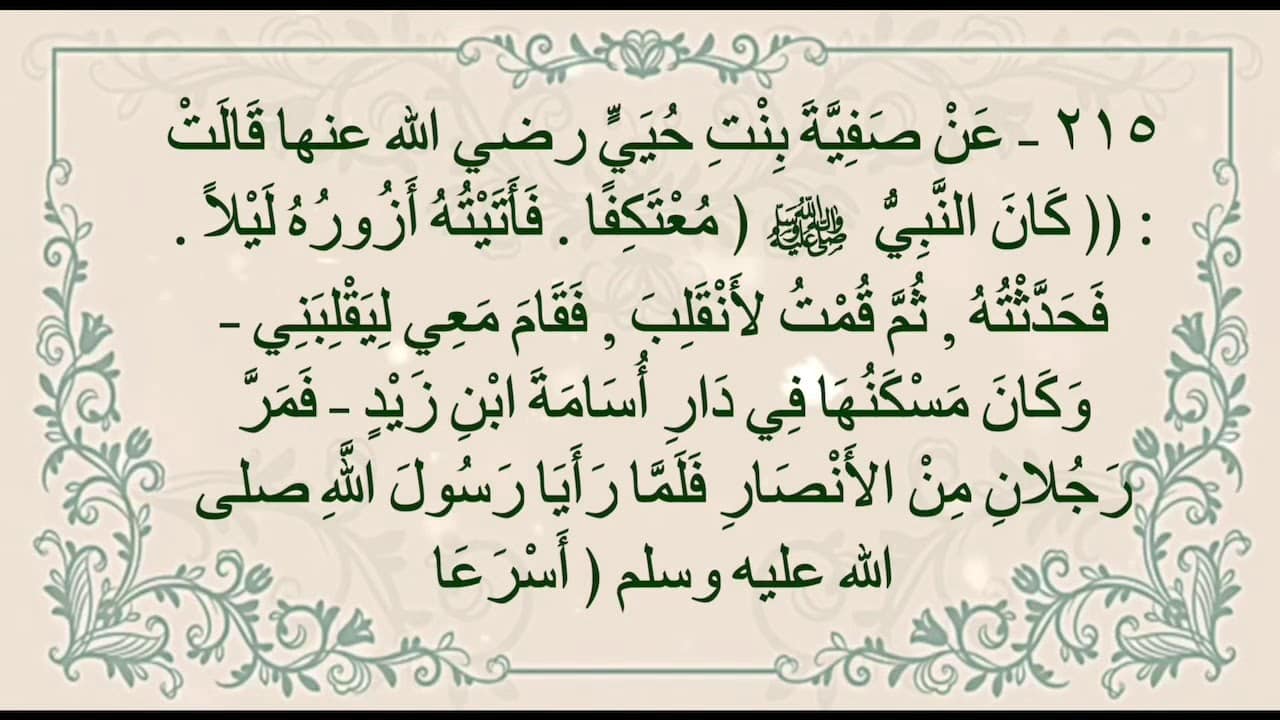 ٢١٥ - عَنْ صَفِيَّةَ بِنْتِ حُيَيٍّ رضي الله عنها قَالَتْ
: (( كَانَ النَّبِيُّ ﷺ ( مُعْتَكِفًا . فَأَتَيْتُهُ أَزُورُهُ لَيْلاً .
فَحَدَّثْتُهُ , ثُمَّ قُمْتُ لأَنْقَلِبَ , فَقَامَ مَعِي لِيَقْلِبَنِي -
وَكَانَ مَسْكَنُهَا فِي دَارِ أُسَامَةَ ابْنِ زَيْدٍ - فَمَرَّ
رَجُلانِ مِنْ الأَنْصَارِ فَلَمَّا رَأَيَا رَسُولَ اللَّهِ صلى
الله عليه وسلم ( أَسْرَعَا